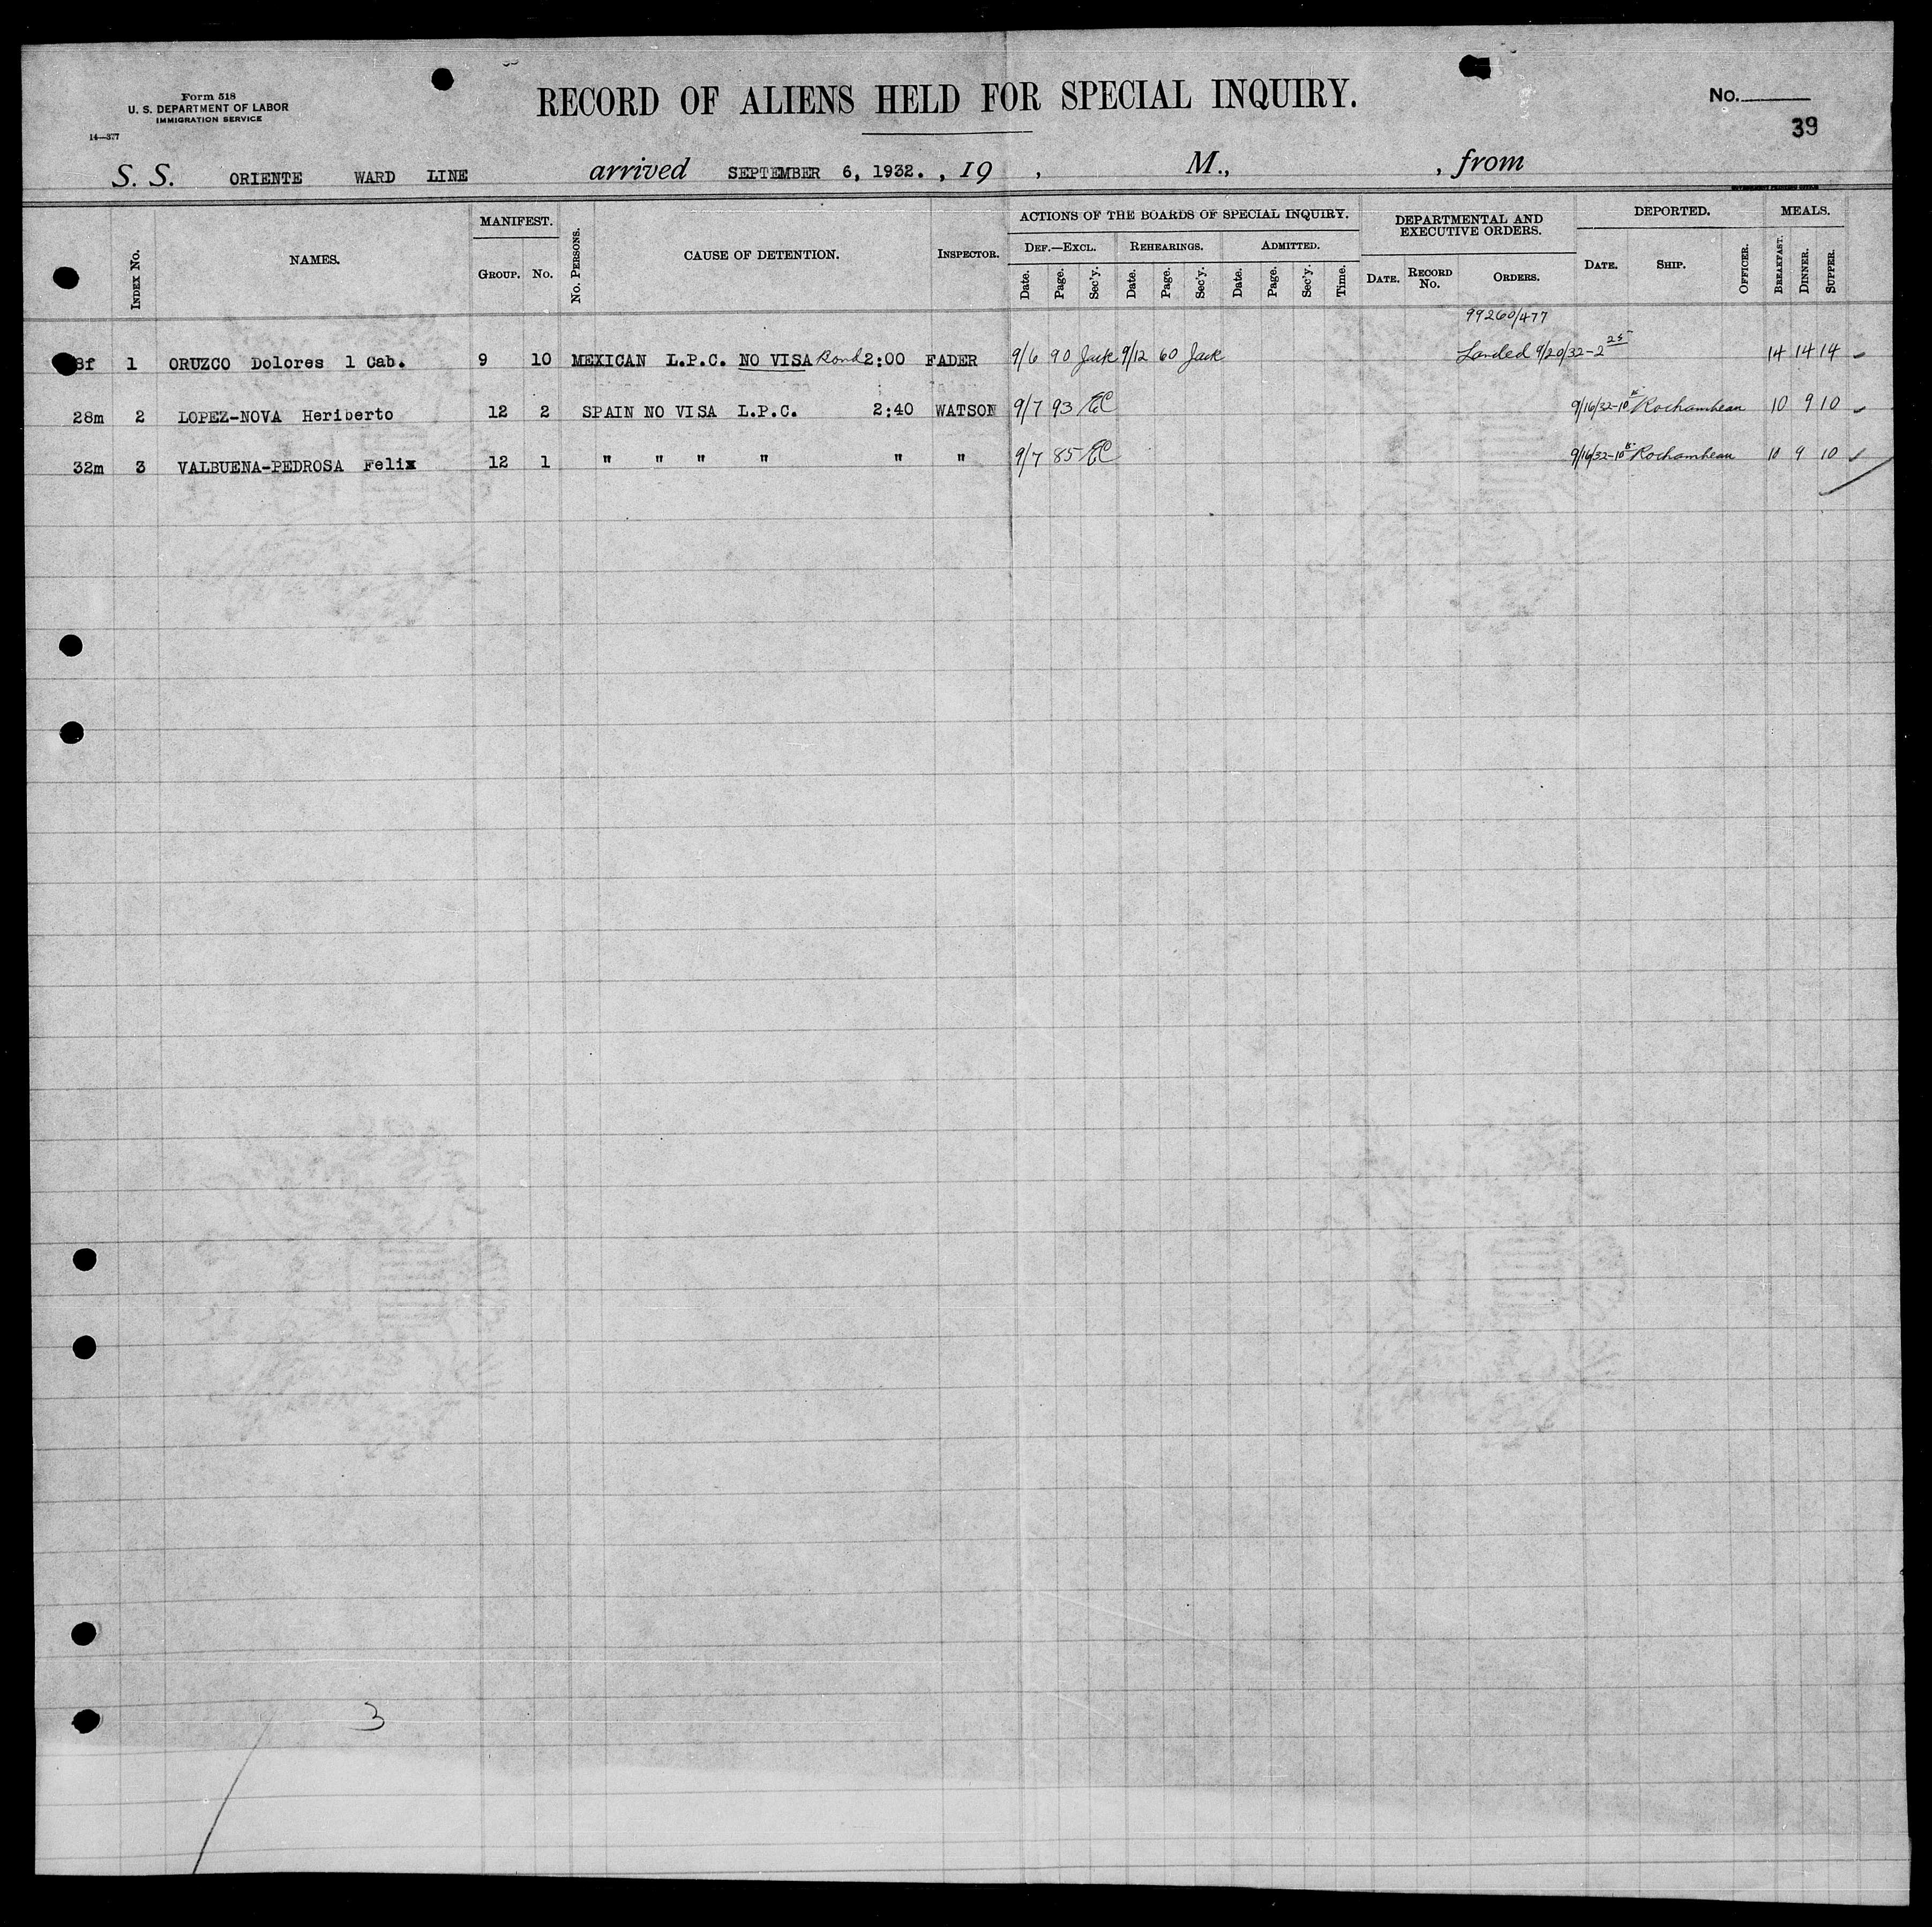 Form 518
U. S. DEPARTMENT OF LABOR
IMMIGRATION SERVICE
14—377
RECORD OF ALIENS HELD FOR SPECIAL INQUIRY.
No.
39
S. S. ORIENTE WARD LINE arrived SEPTEMBER 6, 1932. , 19 , M., , from
INDEX No. NAMES. MANIFEST. GROUP. No. No. PERSONS. CAUSE OF DETENTION. INSPECTOR.
ACTIONS OF THE BOARDS OF SPECIAL INQUIRY.
DEF.—EXCL. REHEARINGS. ADMITTED.
Date. Page. Sec'y. Date. Page. Sec'y. Date. Page. Sec'y. Time.
DEPARTMENTAL AND
EXECUTIVE ORDERS.
DATE. RECORD No. ORDERS.
DEPORTED.
DATE. SHIP. OFFICER.
MEALS.
BREAKFAST. DINNER. SUPPER.
99260/477
8f 1 ORUZCO Dolores 1 Cab. 9 10 MEXICAN L.P.C. NO VISA Bond 2:00 FADER 9/6 90 Jack 9/12 60 Jack Landed 9/20/32-2 25 14 14 14
28m 2 LOPEZ-NOVA Heriberto 12 2 SPAIN NO VISA L.P.C. 2:40 WATSON 9/7 93 EC 9/16/32-10 Rochambeau 10 9 10
32m 3 VALBUENA-PEDROSA Felix 12 1 " " " " " " 9/7 85 EC 9/16/32-10 Rochambeau 10 9 10
3